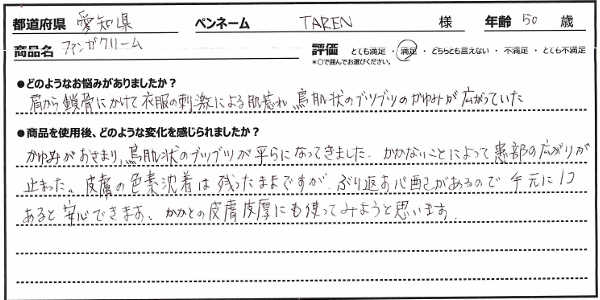 都道府県 愛知県 ペンネーム TAREN 様 年齢 50 歳
商品名 ファンガクリーム 評価 とても満足 ・ 満足 ・ どちらとも言えない ・ 不満足 ・ とても不満足
*○で囲んでお選びください。
●どのようなお悩みがありましたか？
肩から鎖骨にかけて衣服の刺激による肌荒れ、鳥肌状のブツブツのかゆみが広がっていた
●商品を使用後、どのような変化を感じられましたか？
かゆみがおさまり、鳥肌状のブツブツが平らになってきました。かかないことによって患部の広がりが
止まった。皮膚の色素沈着は残ったままですが、ぶり返す心配があるので手元に1つ
あると安心できます。かかとの皮膚皮摩にも使ってみようと思います。